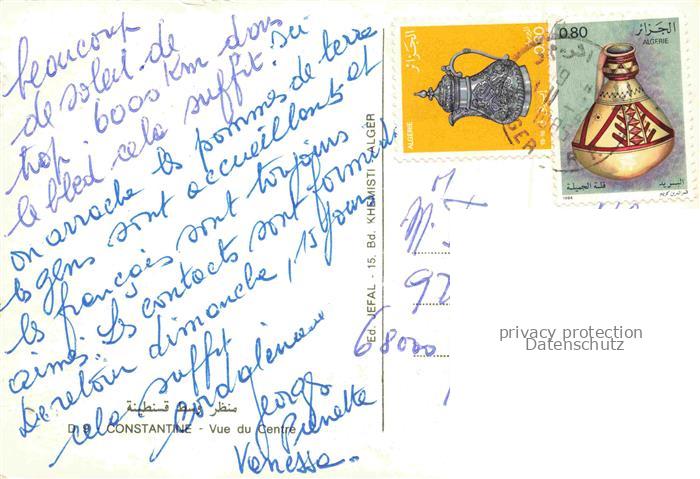 beaucoup
de soleil de
trop. 6000 Km dans
le bled cela suffit. Ici
on arrache les pommes de terre
les gens sont accueillants et
les français sont toujours
aimés. Les contacts sont formels
De retour dimanche, 15 jours
cela suffit
Cordialement
Georges
Pierrette
Vanessa.
منظر وسط قسنطينة
D. 9 - CONSTANTINE - Vue du Centre
Ed. JEFAL - 15. Bd. KHEMISTI - ALGER
الجزائر
0.30
ALGERIE
الجزائر
0.80
ALGERIE
البريد
قلة الجميلة
1984
M.
92
68000
privacy protection
Datenschutz